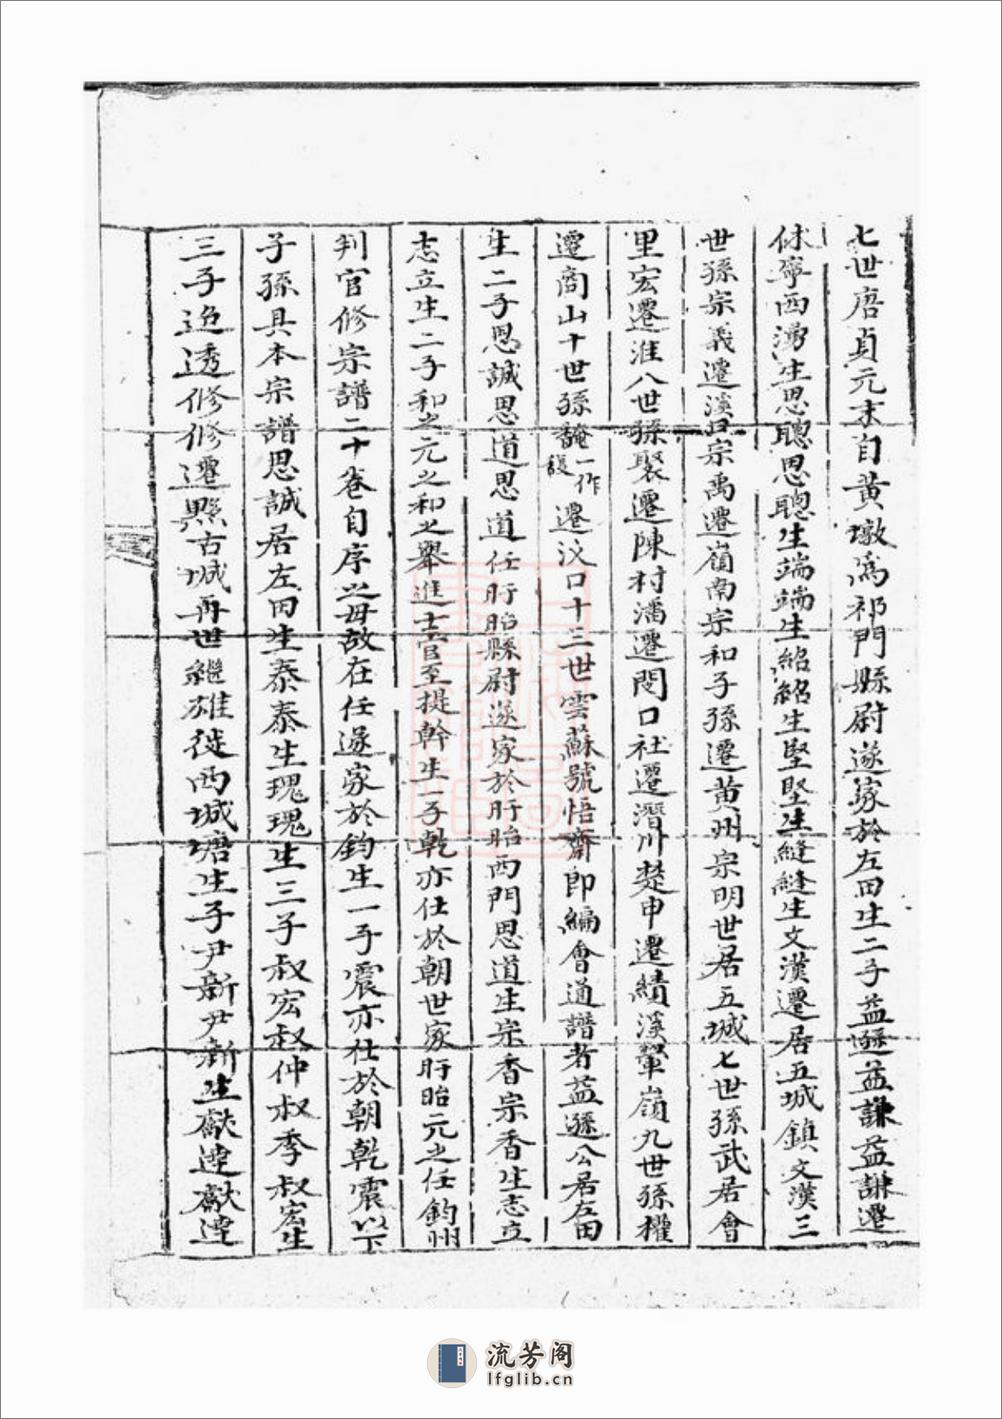 七世唐貞元末自黃墩為祁門縣尉遂家於左田生二子益遜益謙益謙遷
休寧西湧生思聰思聰生端端生紹紹生堅堅生縫縫生文漢遷居五城鎮文漢三
世孫宗義遷溪口宗禹遷嶺南宗和子孫遷黃州宗明世居五城七世孫武居會
里宏遷淮八世孫聚遷陳村潘遷閔口社遷潛川楚申遷績溪輋嶺九世孫權
遷商山十世孫馣一作馥遷汊口十三世雲蘇號悟齋即編會通譜者益遜公居左田
生二子思誠思道思道任盱眙縣尉遂家於盱眙西門思道生宗香宗香生志立
志立生二子和之元之和之舉進士官至提幹生一子乾亦仕於朝世家盱眙元之任鈞州
判官修宗譜二十卷自序之毋故在任遂家於鈞生一子震亦仕於朝乾震以下
子孫具本宗譜思誠居左田生泰泰生瑰瑰生三子叔宏叔仲叔季叔宏生
三子迨透修修遷黟古城再世繼雄徙西城塘生子尹新尹新生獻逹獻逹
流芳阁
lfglib.cn